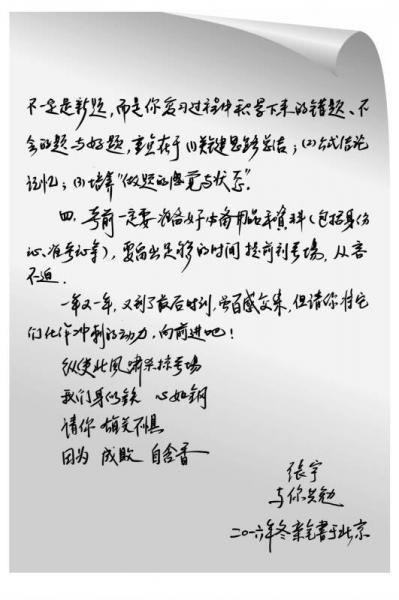 不一定是新题，而是你复习过程中积累下来的错题、不
会的题与好题，重点在于(1)关键思路总结；(2)公式结论
记忆；(3)培养“做题的感觉与状态”。
四、考前一定要准备好必备用品和资料(包括身份
证、准考证等)，要留出足够的时间提前到考场，从容
不迫．
一年又一年，又到了最后时刻，虽百感交集，但请你将它
们化作冲刺的动力，向前进吧！
纵使北风肃杀掠考场
我们身似铁 心如钢
请你 无惧
因为 成败 自含香
张宇
与你共勉
二〇一六年冬 笔书于北京